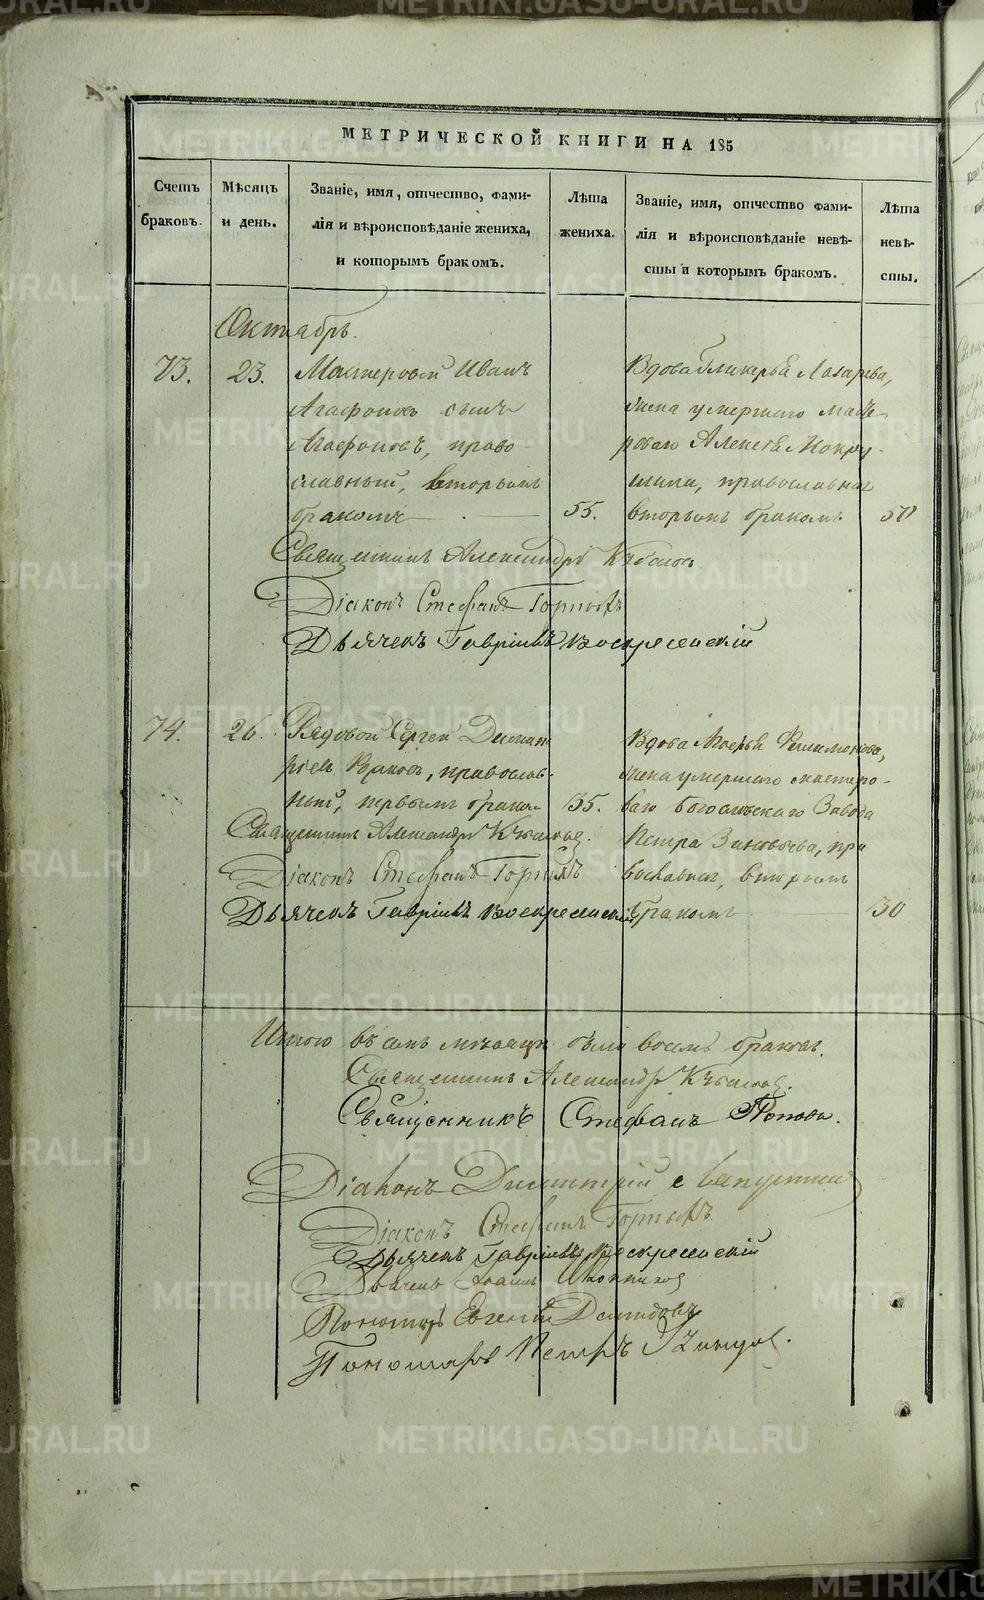 МЕТРИЧЕСКОЙ КНИГИ НА 185
Счетъ браковъ.
Мѣсяцъ и день.
Званіе, имя, отчество, фами-
лія и вѣроисповѣданіе жениха,
и которымъ бракомъ.
Лѣта
жениха.
Званіе, имя, отчество фами-
лія и вѣроисповѣданіе невѣ-
сты и которымъ бракомъ.
Лѣта
невѣ-
сты.
Октябрь.
73.
23.
Мастеровой Иванъ
Агафоновъ сынъ
Агафоновъ, право-
славный, вторымъ
бракомъ
55.
Вдова Гликерья Лазарева,
жена умершаго масте-
роваго Алексѣя Мокру-
шина, православная
вторымъ бракомъ
50
Священникъ Александръ
Діаконъ Стефанъ Горныхъ
Дьячекъ Гавріилъ Воскресенскій
74.
26.
Рядовой Сергей Димит-
ріевъ, православ-
ный, первымъ бракомъ
35.
Вдова Филимонова,
жена умершаго мастеро-
ваго Завода
Петра Зиновьева, пра
вославная, вторымъ
бракомъ
30
Священникъ Александръ
Діаконъ Стефанъ Горныхъ
Дьячекъ Гавріилъ Воскресенскій
Итого въ семъ мѣсяцѣ было восемь браковъ.
Священникъ Александръ
Священникъ Стефанъ Поповъ.
Діаконъ Димитрій
Діаконъ Стефанъ Горныхъ
Дьячекъ Гавріилъ Воскресенскій
Дьячекъ Иконниковъ
Пономарь Евгеній Демидовъ
Пономарь Петръ
METRIKI.GASO-URAL.RU